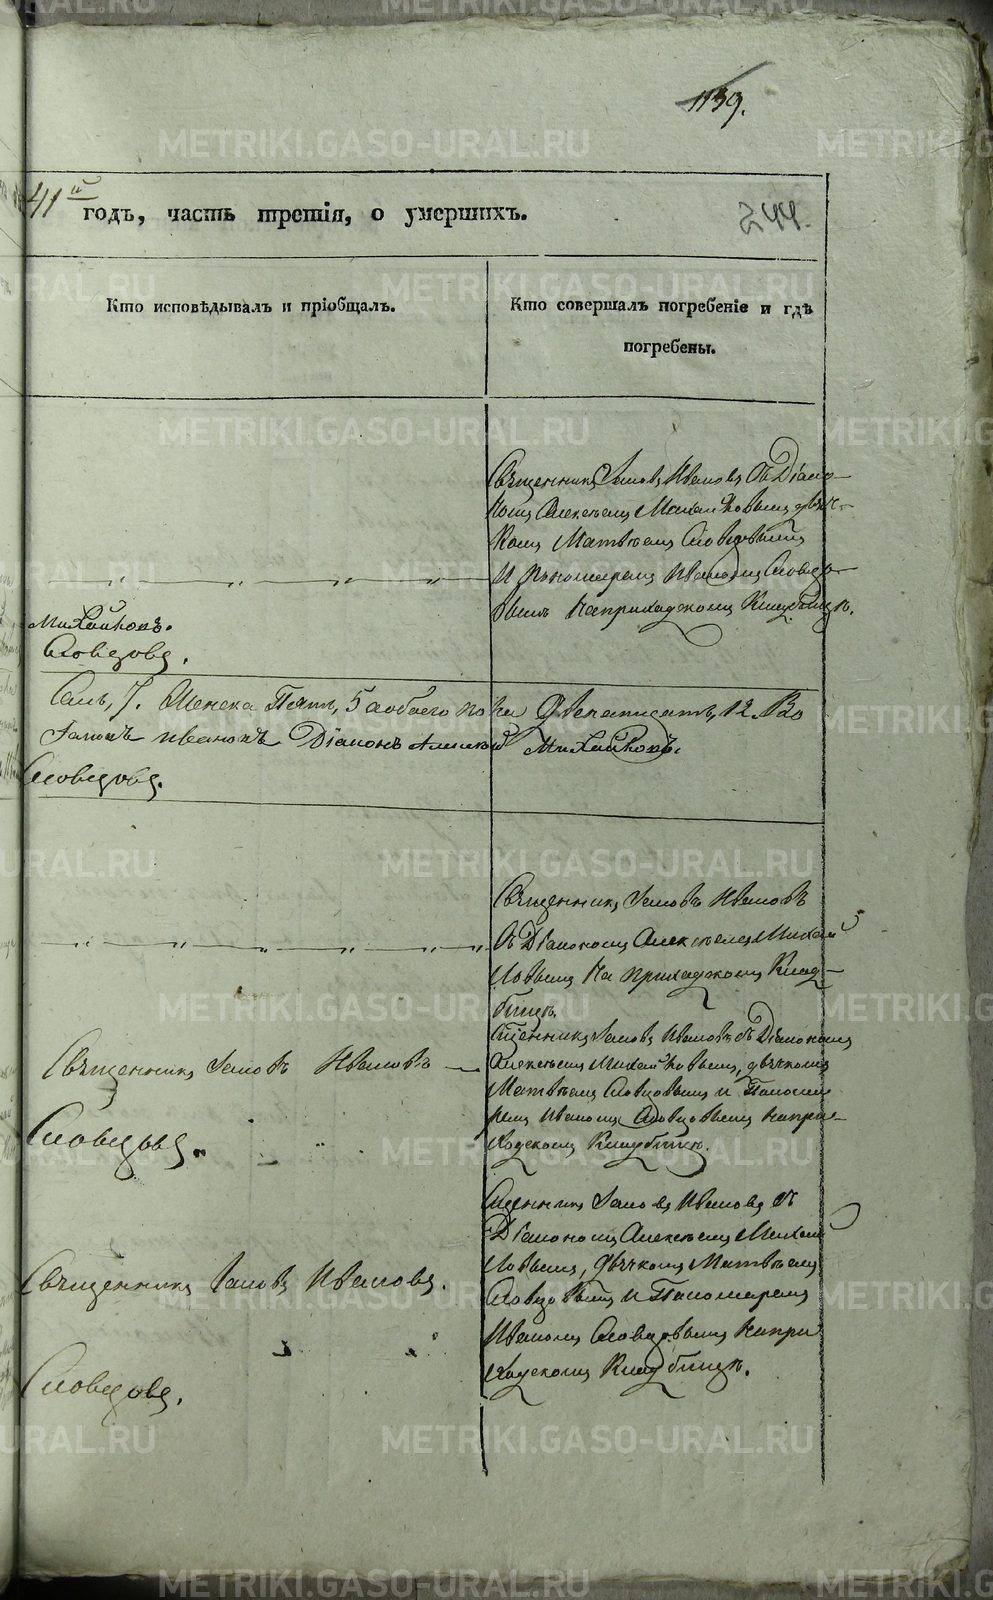 1139.
41й годъ, часть третія, о умершихъ.
244.
Кто исповѣдывалъ и пріобщалъ.
Кто совершалъ погребеніе и гдѣ
погребены.
Священникъ Іаковъ Ивановъ съ Діако-
номъ Алексѣемъ Михайловымъ дьяч-
комъ Матвѣемъ Словцовымъ
и пономаремъ Иваномъ Словцо-
вымъ наприходскомъ Кладбищѣ.
Михайловъ.
Словцовъ.
7. Женска Пять, 5 а обоего пола Двенатцать, 12. Во
Іаковъ Ивановъ Діаконъ Алексѣй Михайловъ.
Словцовъ.
Священникъ Іаковъ Ивановъ
съ Діакономъ Алексѣемъ Михай
ловымъ на приходскомъ Клад-
бищѣ.
Священникъ Іаковъ Ивановъ
Сщенникъ Іаковъ Ивановъ съ Діакономъ
Алексѣемъ Михайловымъ, дьячкомъ
Матвѣемъ Словцовымъ и Понома
ремъ Иваномъ Словцовымъ наприх-
ходскомъ Кладбищѣ.
Словцовъ.
Сщенникъ Іаковъ Ивановъ съ
Діакономъ Алексѣемъ Михай
ловымъ, Дьячкомъ Матвѣемъ
Словцовымъ и Пономаремъ
Иваномъ Словцовымъ напри
ходскомъ Кладбищѣ.
Священникъ Іаковъ Ивановъ.
Словцовъ.
METRIKI.GASO-URAL.RU